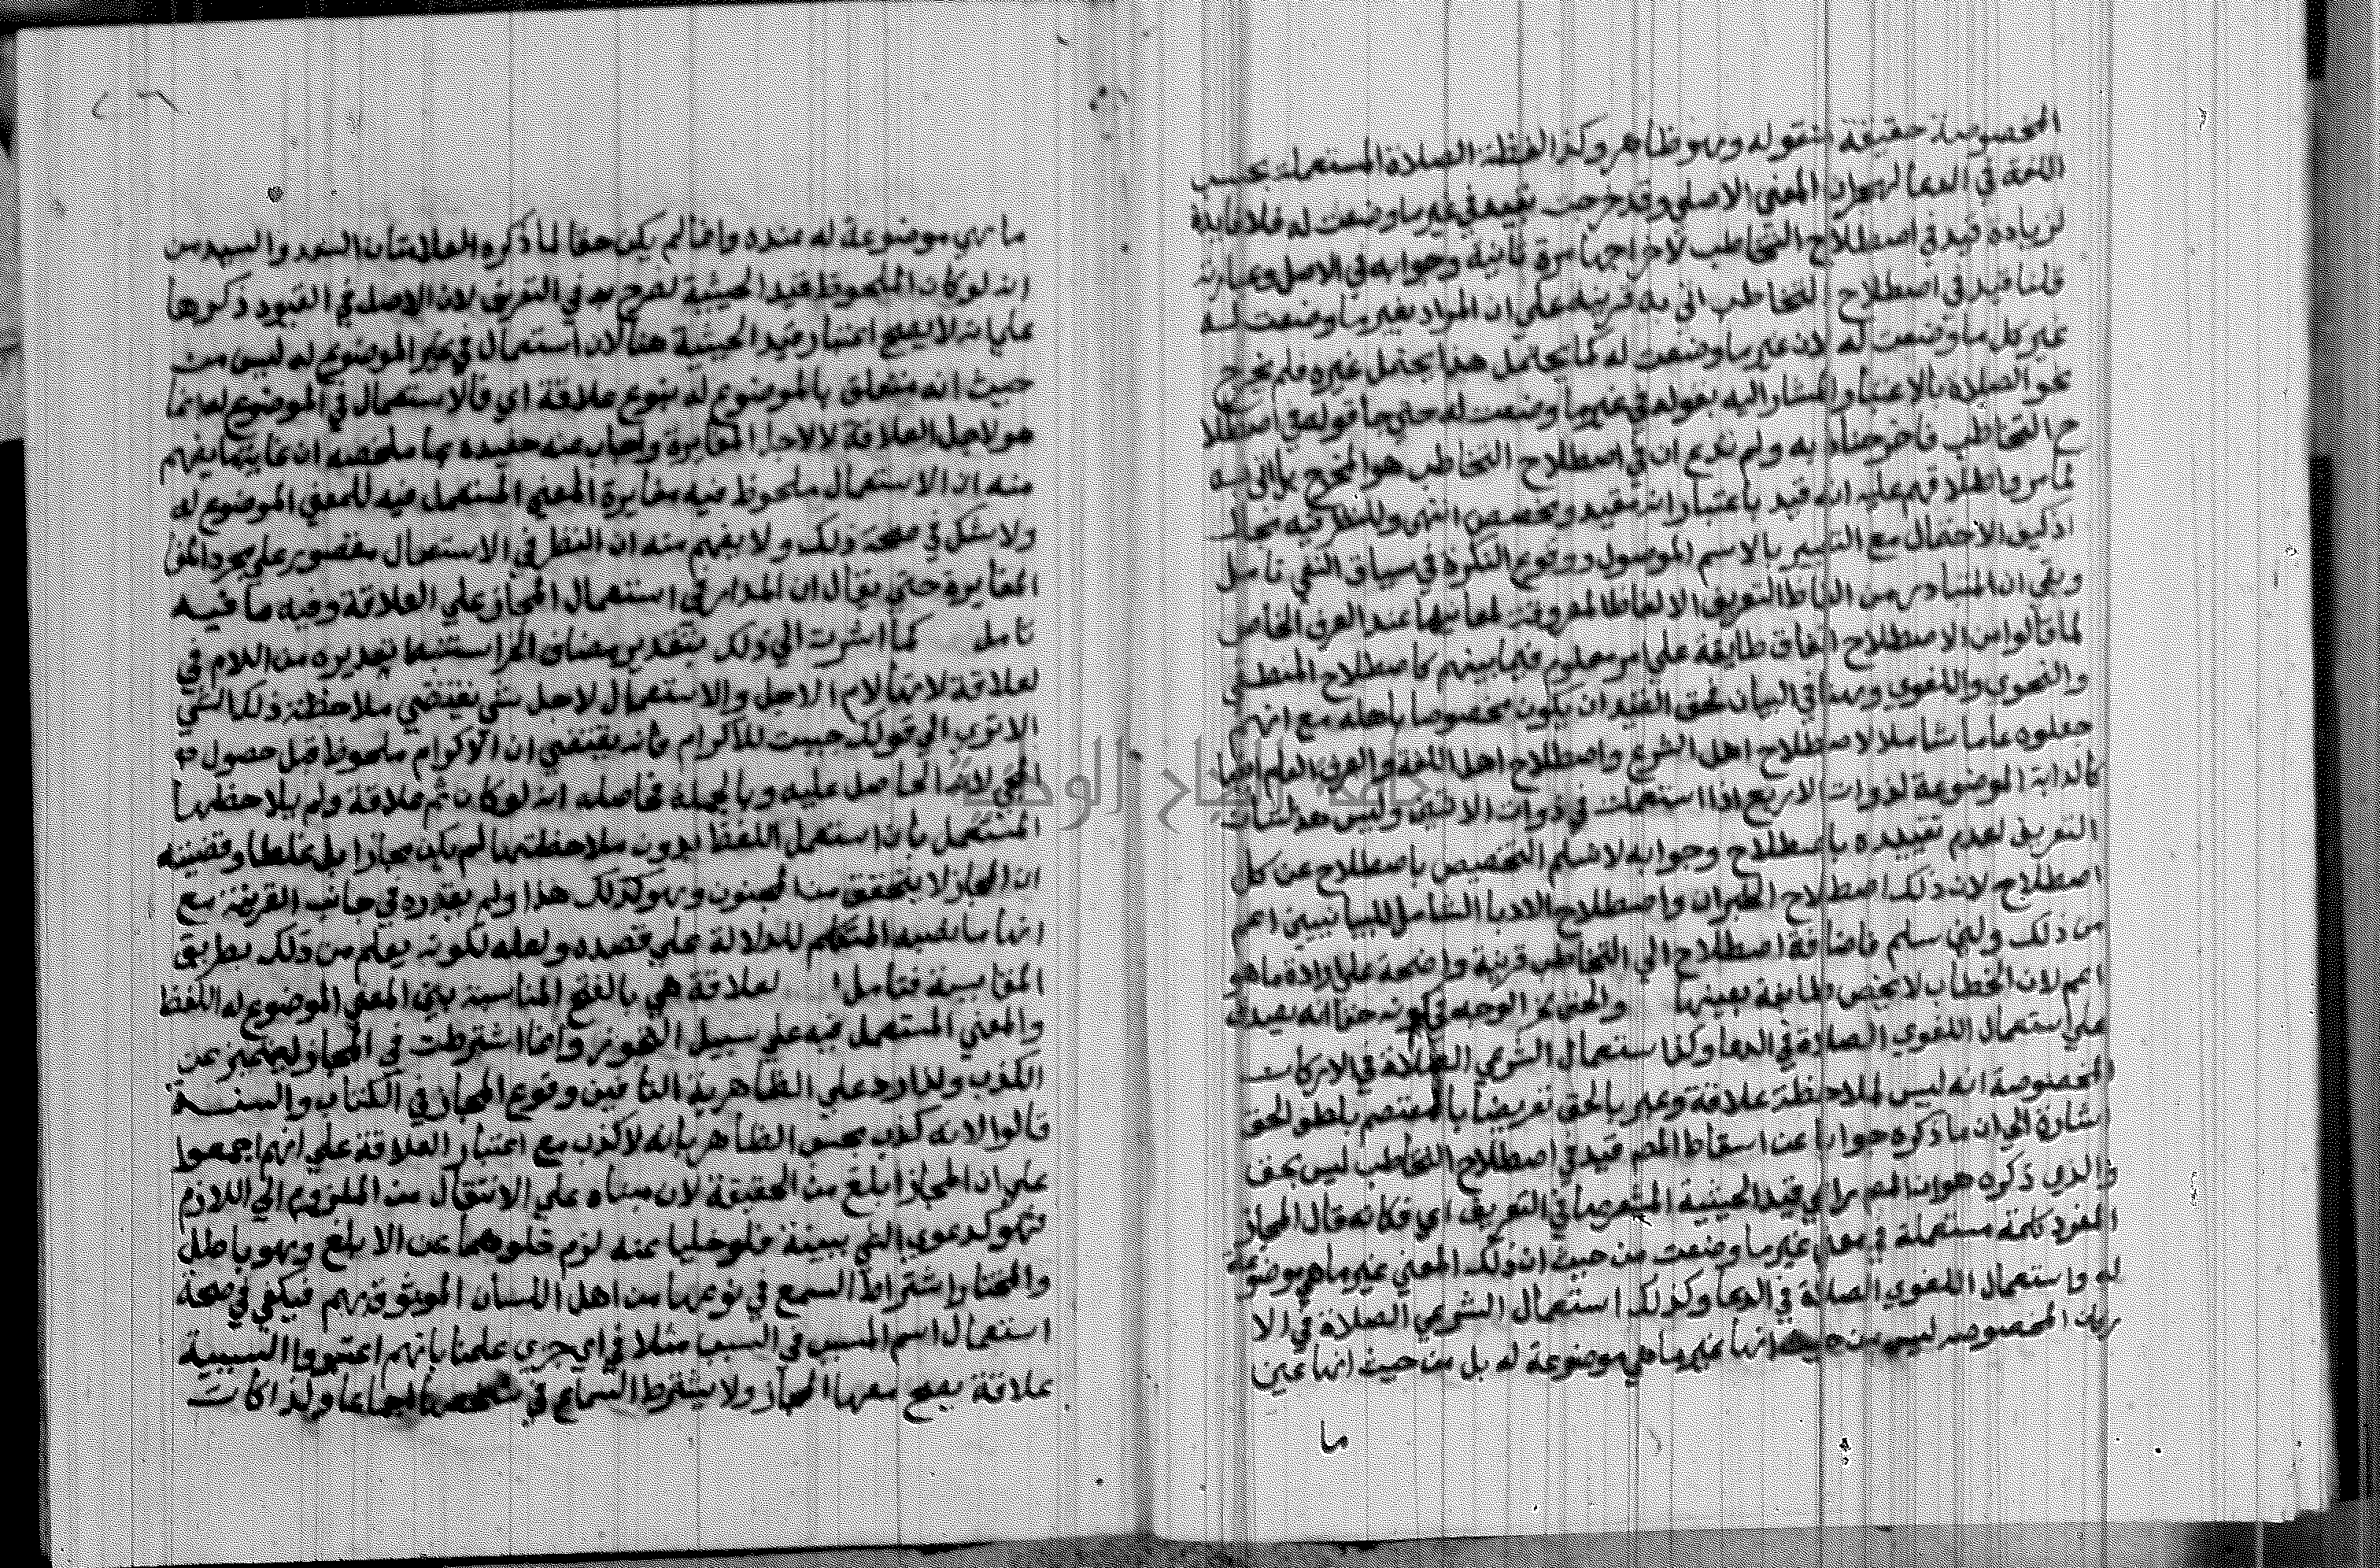 المخصوصة حقيقة منقوله وهو ظاهر وكذا لفظة الصلاة المستعملة بحسب
اللغة في الدعا لهجران المعني الاصلي وقد خرجت بقيد في غير ما وضعت له فلا فايدة
لزيادة قيد في اصطلاح التخاطب لاخراجها مرة ثانية وجوابه في الاصل وعبارته
قلنا قيد في اصطلاح التخاطب اتي به قرينة علي ان المراد بغير ما وضعت له
غير كل ما وضعت له لان غير ما وضعت له كما يحتمل هذا يحتمل غيره فلم يخرج
نحو الصلاة بالاعتبار المشار اليه بقوله في غير ما وضعت له حتي جا قوله في اصطلا
ح التخاطب فاخرجناه به ولم ندع ان في اصطلاح التخاطب هو المخرج بل اتي به
لما مر واطلاقهم عليه انه قيد باعتبار انه تقييد وتخصيص انتهي وللنظر فيه مجال
اذ كيف الاحتمال مع التعبير بالاسم الموصول ووقوع النكرة في سياق النفي تامل
وبقي ان المتبادر من الفاظ التعريف الالفاظ المعروفة لمعانيها عند العرف الخاص
لما قالوا من الاصطلاح اتفاق طايفة علي امر معلوم فيما بينهم كاصطلاح المنطقي
والنحوي واللغوي وهنا في البيان فحق القيد ان يكون مخصوصا باهله مع انهم
جعلوه عاما شاملا لاصطلاح اهل الشرع واصطلاح اهل اللغة والعرف العام ايضا
كالدابة الموضوعة لذوات الاربع اذا استعملت في ذوات الاثنين وليس هذا شان
التعريف لعدم تقييده باصطلاح وجوابه لا نسلم التخصيص باصطلاح عن كل
اصطلاح لان ذلك اصطلاح واصطلاح الادبا الشامل للبيانيين اعم
من ذلك ولئن سلم فاضافة اصطلاح الي التخاطب قرينة واضحة علي ارادة ما هو
اعم لان الخطاب لا يختص بطايفة بعينها والحق الوجه في كونه حقا انه يصدق
علي استعمال اللغوي الصلاة في الدعا وكذا استعمال الشرعي الصلاة في الاركان
المخصوصة انه ليس لملاحظة علاقة وعبر بالحق تعريضا بالمعتصم باطول لحق
اشارة الي ان ما ذكره جوابا عن اسقاط المص قيد في اصطلاح التخاطب ليس بحق
والذي ذكره هو ان المص راعي قيد الحيثية في التعريف اي فكانه قال المجاز
المفرد كلمة مستعملة في معني غير ما وضعت من حيث ان ذلك المعني غير ما هي موضوعة
له واستعمال اللغوي الصلاة في الدعا وكذلك استعمال الشرعي الصلاة في الا
ركان المخصوصه ليس من حيث انها غير ما هي موضوعة له بل من حيث انها عين
ما
ما هي موضوعة له عنده وانما لم يكن حقا لما ذكره العلامتان السعد والسيد من
انه لو كان الملحوظ قيد الحيثية لصرح به في التعريف لان الاصل في القيود ذكرها
علي انه لا يصح اعتبار قيد الحيثية هنا لان استعمال في غير الموضوع له ليس من
حيث انه متعلق بالموضوع له بنوع علاقة اي فالاستعمال في الموضوع له انما
هو لاجل العلاقة لا لاجل المغايرة واجاب عنه حفيده بما ملخصه ان غايتها يفهم
منه ان الاستعمال ملحوظ فيه مغايرة المعني المستعمل فيه للمعني الموضوع له
ولا شك في صحة ذلك ولا يفهم منه ان النظر في الاستعمال مقصور علي مجرد المغا
المغايرة حتي يقال ان المدار في استعمال المجاز علي العلاقة وفيه ما فيه
تامل كما اشرت الي ذلك بتقدير مضاف الخ استنبط تقديره من اللام في
لعلاقة لانها لام الاجل والاستعمال لاجل شي يقتضي ملاحظة ذلك الشي
الا تري الي قولك جيت للاكرام فانه يقتضي ان الاكرام ملحوظ قبل حصول
المجي لانه الحاصل عليه وبالجملة فحاصله انه لو كان ثم علاقة ولم يلاحظها
المستعمل بان استعمل اللفظ بدون ملاحظتها لم يكن مجازا بل غلطا وقضيته
ان المجاز لا يتحقق من المجنون وهو كذلك هذا ولم يقدره في جانب القرينة مع
انها ما نصبه المتكلم للدلالة علي قصده ولعله لكونه يعلم من ذلك بطريق
المقايسة فتامل لعلاقة هي بالفتح المناسبة بين المعني الموضوع له اللفظ
والمعني المستعمل فيه علي سبيل وانما اشترطت في المجاز ليتميز عن
الكذب ولذا رد علي الظاهرية النافين وقوع المجاز في الكتاب والسنة
قالوا لانه كذب بحسب الظاهر بانه لا كذب مع اعتبار العلاقة علي انهم اجمعوا
علي ان المجاز ابلغ من الحقيقة لان مبناه علي الانتقال من الملزوم الي اللازم
فهو كدعوي الشي ببينة فلو خليا عنه لزم خلوهما عن الابلغ وهو باطل
والمختار اشتراط السمع في نوعها من اهل اللسان الموثوق بهم فيكفي في صحة
استعمال اسم المسبب في السبب مثلا في اي جزي علمنا بانهم اعتبروا السببية
علاقة يصح معها المجاز ولا يشترط السماع في شخصها اجماعا ولذا كانت